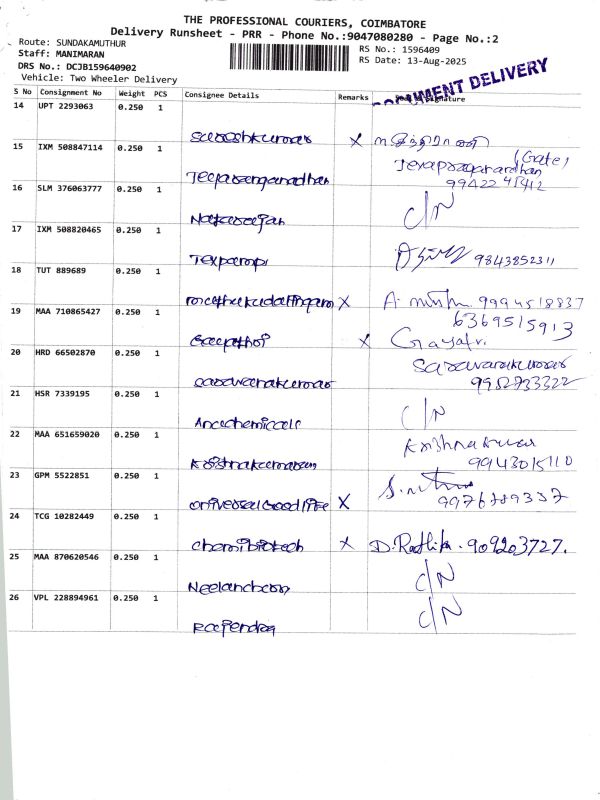 THE PROFESSIONAL COURIERS, COIMBATORE
Delivery Runsheet - PRR - Phone No.:9047080280 - Page No.:2
Route: SUNDAKAMUTHUR
RS No.: 1596409
Staff: MANIMARAN
RS Date: 13-Aug-2025
DRS No.: DCJB159640902
Vehicle: Two Wheeler Delivery
DELIVERY
S No Consignment No Weight PCS Consignee Details Remarks Signature
14 UPT 2293063 0.250 1
Sureshkumar X
15 IXM 508847114 0.250 1
(Gate)
9942245412
16 SLM 376063777 0.250 1
C/N
17 IXM 508820465 0.250 1
Texpampi 9843852311
18 TUT 889689 0.250 1
X A. 9994518837
19 MAA 710865427 0.250 1
6369515913
Gayathri X Gayatr.
20 HRD 66502870 0.250 1
Saravanakumar
saravanakumar 9952733322
21 HSR 7339195 0.250 1
Anuchemicals C/N
22 MAA 651659020 0.250 1
Krishnakumar
Krishnakumaran 9943015110
23 GPM 5522851 0.250 1
X 9976789337
24 TCG 10282449 0.250 1
Chemibiotech X D. Radhika. 909203727.
25 MAA 870620546 0.250 1
C/N
26 VPL 228894961 0.250 1
C/N
Rajendra